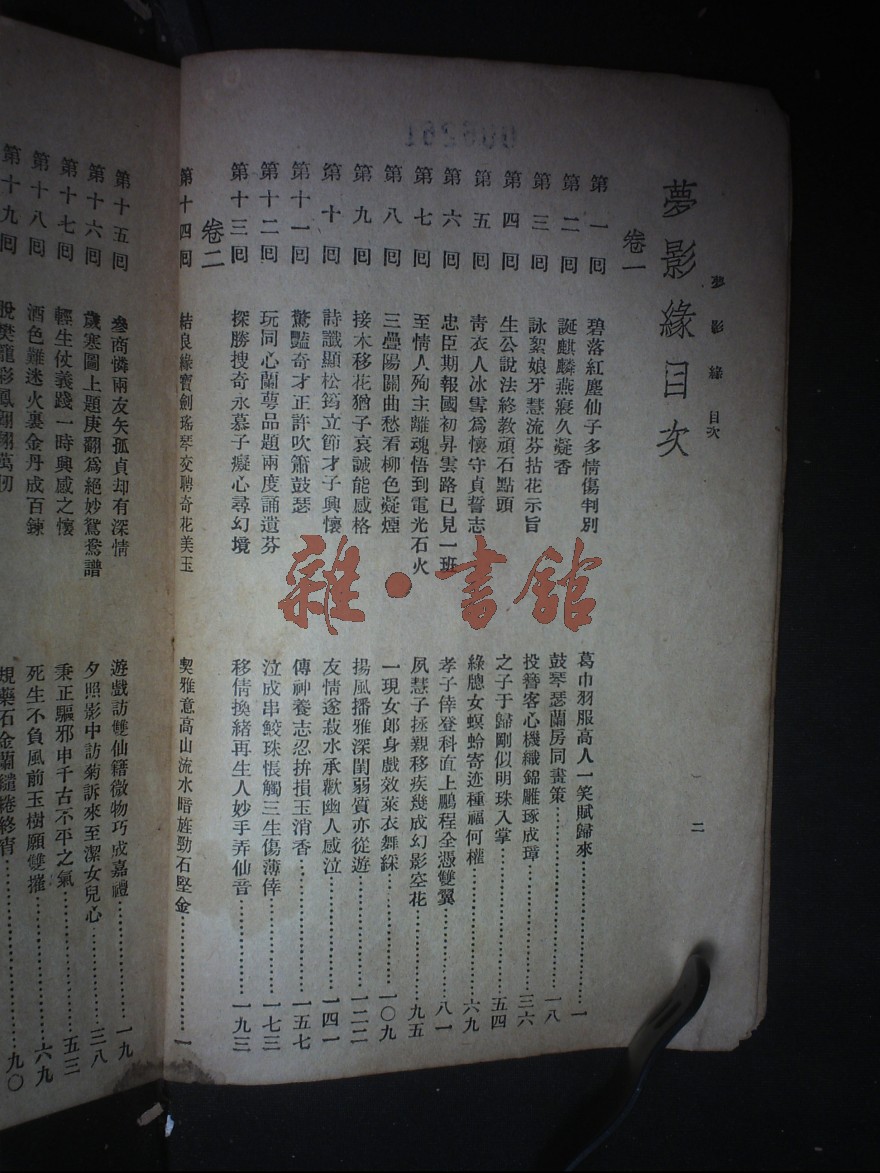 夢影緣 目次
二
夢影緣目次
卷一
第一囘 碧落紅塵仙子多情傷判別 葛巾羽服高人一笑賦歸來……一
第二囘 誕麒麟燕寢久凝香 鼓琴瑟蘭房同畫策……一八
第三囘 詠絮娘牙慧流芬拈花示旨 投簪客心機織錦雕琢成璋……三六
第四囘 生公說法終教頑石點頭 之子于歸剛似明珠入掌……五四
第五囘 靑衣人冰雪爲懷守貞誓志 綠牕女螟蛉寄迹種福何權……六九
第六囘 忠臣期報國初昇雲路已見一班 孝子倖登科直上鵬程全憑雙翼……八一
第七囘 至情人殉主離魂悟到電光石火 夙慧子拯親移疾幾成幻影空花……九五
第八囘 三疊陽關曲愁看柳色凝煙 一現女郎身戲效萊衣舞綵……一〇九
第九囘 接木移花猶子哀誠能感格 揚風播雅深閨弱質亦從遊……一二二
第十囘 詩讖顯松筠立節才子興懷 友情遂菽水承歡幽人感泣……一四一
第十一囘 驚豔奇才正許吹簫鼓瑟 傳神養志忍拚損玉消香……一五七
第十二囘 玩同心蘭蕚品題兩度誦遺芬 泣成串鮫珠悵觸三生傷薄倖……一七三
第十三囘 探勝搜奇永慕子癡心尋幻境 移情換緒再生人妙手弄仙音……一九三
卷二
第十四囘 結良緣寶劍瑤琴交聘奇花美玉 契雅意高山流水暗旌勁石堅金……一
第十五囘 參商憐兩友矢孤貞却有深情 遊戲訪雙仙籍微物巧成嘉禮……一九
第十六囘 歲寒圖上題庚翻爲絕妙鴛鴦譜 夕照影中訪菊訴來至潔女兒心……三八
第十七囘 輕生仗義踐一時興感之懷 秉正驅邪申千古不平之氣……五三
第十八囘 酒色難迷火裏金丹成百鍊 死生不負風前玉樹願雙摧……六九
第十九囘 脫樊籠彩鳳翱翔萬仞 規藥石金蘭繾綣終宵……九〇
雜·書館